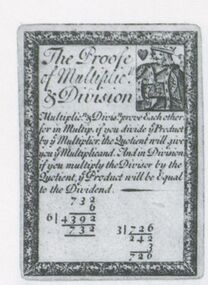 The Proofe
of Multiplic.ⁿ
& Division
Multiplic.ⁿ & Divis.ⁿ prove Each other
for in Multip. if you divide yͤ Product
by yͤ Multiplier, the Quotient will give
you yͤ Multiplicand. And in Division
if you multiply the Divisor by the
Quotient, yͤ Product will be Equal
to the Dividend.
732
6
6)4392
732
3)726
242
3
726